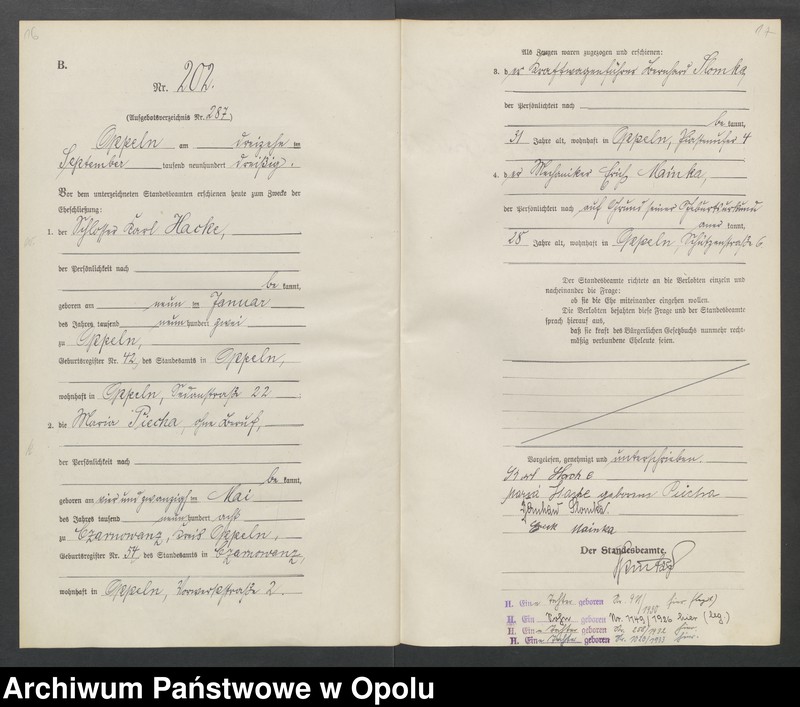 16
B.
Nr. 202.
(Aufgebotsverzeichnis Nr. 287)
Oppeln am dreizehn ten
September tausend neunhundert dreißig.
Vor dem unterzeichneten Standesbeamten erschienen heute zum Zwecke der
Eheschließung:
1. der Schlosser Karl Hacke,
der Persönlichkeit nach
be kannt,
geboren am neun ten Januar
des Jahres tausend neun hundert zwei
zu Oppeln,
Geburtsregister Nr. 42, des Standesamts in Oppeln,
wohnhaft in Oppeln, Sedanstraße 22 ;
2. die Maria Piecha, ohne Beruf,
der Persönlichkeit nach
be kannt,
geboren am vier und zwanzigs ten Mai
des Jahres tausend neun hundert acht
zu Czarnowanz, Kreis Oppeln,
Geburtsregister Nr. 54, des Standesamts in Czarnowanz,
wohnhaft in Oppeln, Vorwerkstraße 2.
17
Als Zeugen waren zugezogen und erschienen:
3. der Kraftwagenführer Bernhard Slomka,
der Persönlichkeit nach
be kannt,
31 Jahre alt, wohnhaft in Oppeln, 4
4. der Mechaniker Erich Mainka,
der Persönlichkeit nach auf Grund seiner Geburtsurkunde
aner kannt,
28 Jahre alt, wohnhaft in Oppeln, Schützenstraße 6
Der Standesbeamte richtete an die Verlobten einzeln und
nacheinander die Frage:
ob sie die Ehe miteinander eingehen wollen.
Die Verlobten bejahten diese Frage und der Standesbeamte
sprach hierauf aus,
daß sie kraft des Bürgerlichen Gesetzbuchs nunmehr recht-
mäßig verbundene Eheleute seien.
Vorgelesen, genehmigt und unterschrieben.
Karl Hacke
Maria Hacke geborene Piecha
Bernhard Slomka.
Erich Mainka
Der Standesbeamte.
II. Eine Tochter geboren Nr. 1930 hier
II. Ein geboren Nr. 1149/1926 hier (leg.)
II. Eine Tochter geboren Nr. 1932 hier
II. Eine Tochter geboren Nr. 1933 hier.
Archiwum Państwowe w Opolu